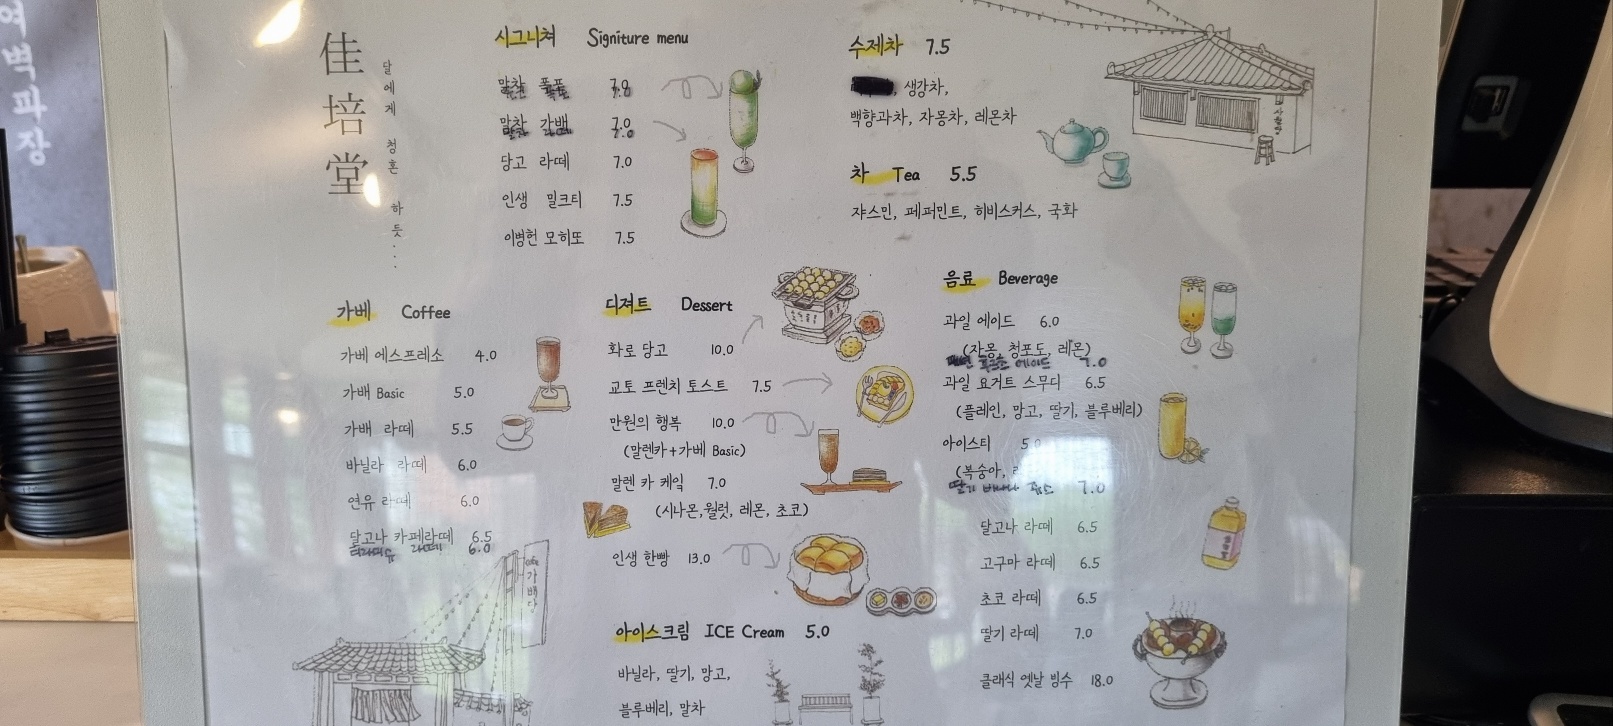 여벽파장
佳培堂
달에게 청혼 하듯...
시그니쳐 Signiture menu
말찬 퐁퐁 7.0
말찬 가배 7.0
당고 라떼 7.0
인생 밀크티 7.5
이병헌 모히또 7.5
수제차 7.5
, 생강차,
백향과차, 자몽차, 레몬차
차 Tea 5.5
쟈스민, 페퍼민트, 히비스커스, 국화
가베 Coffee
가베 에스프레소 4.0
가배 Basic 5.0
가배 라떼 5.5
바닐라 라떼 6.0
연유 라떼 6.0
달고나 카페라떼 6.5
라떼 6.0
가배당
디져트 Dessert
화로 당고 10.0
교토 프렌치 토스트 7.5
만원의 행복 10.0
(말렌카+가베 Basic)
말렌 카 케잌 7.0
(시나몬,월넛, 레몬, 초코)
인생 한빵 13.0
아이스크림 ICE Cream 5.0
바닐라, 딸기, 망고,
블루베리, 말차
음료 Beverage
과일 에이드 6.0
(자몽, 청포도, 레몬)
에이드 7.0
과일 요거트 스무디 6.5
(플레인, 망고, 딸기, 블루베리)
아이스티 5.0
(복숭아,
딸기 바나나 쥬스 7.0
달고나 라떼 6.5
고구마 라떼 6.5
초코 라떼 6.5
딸기 라떼 7.0
클래식 옛날 빙수 18.0